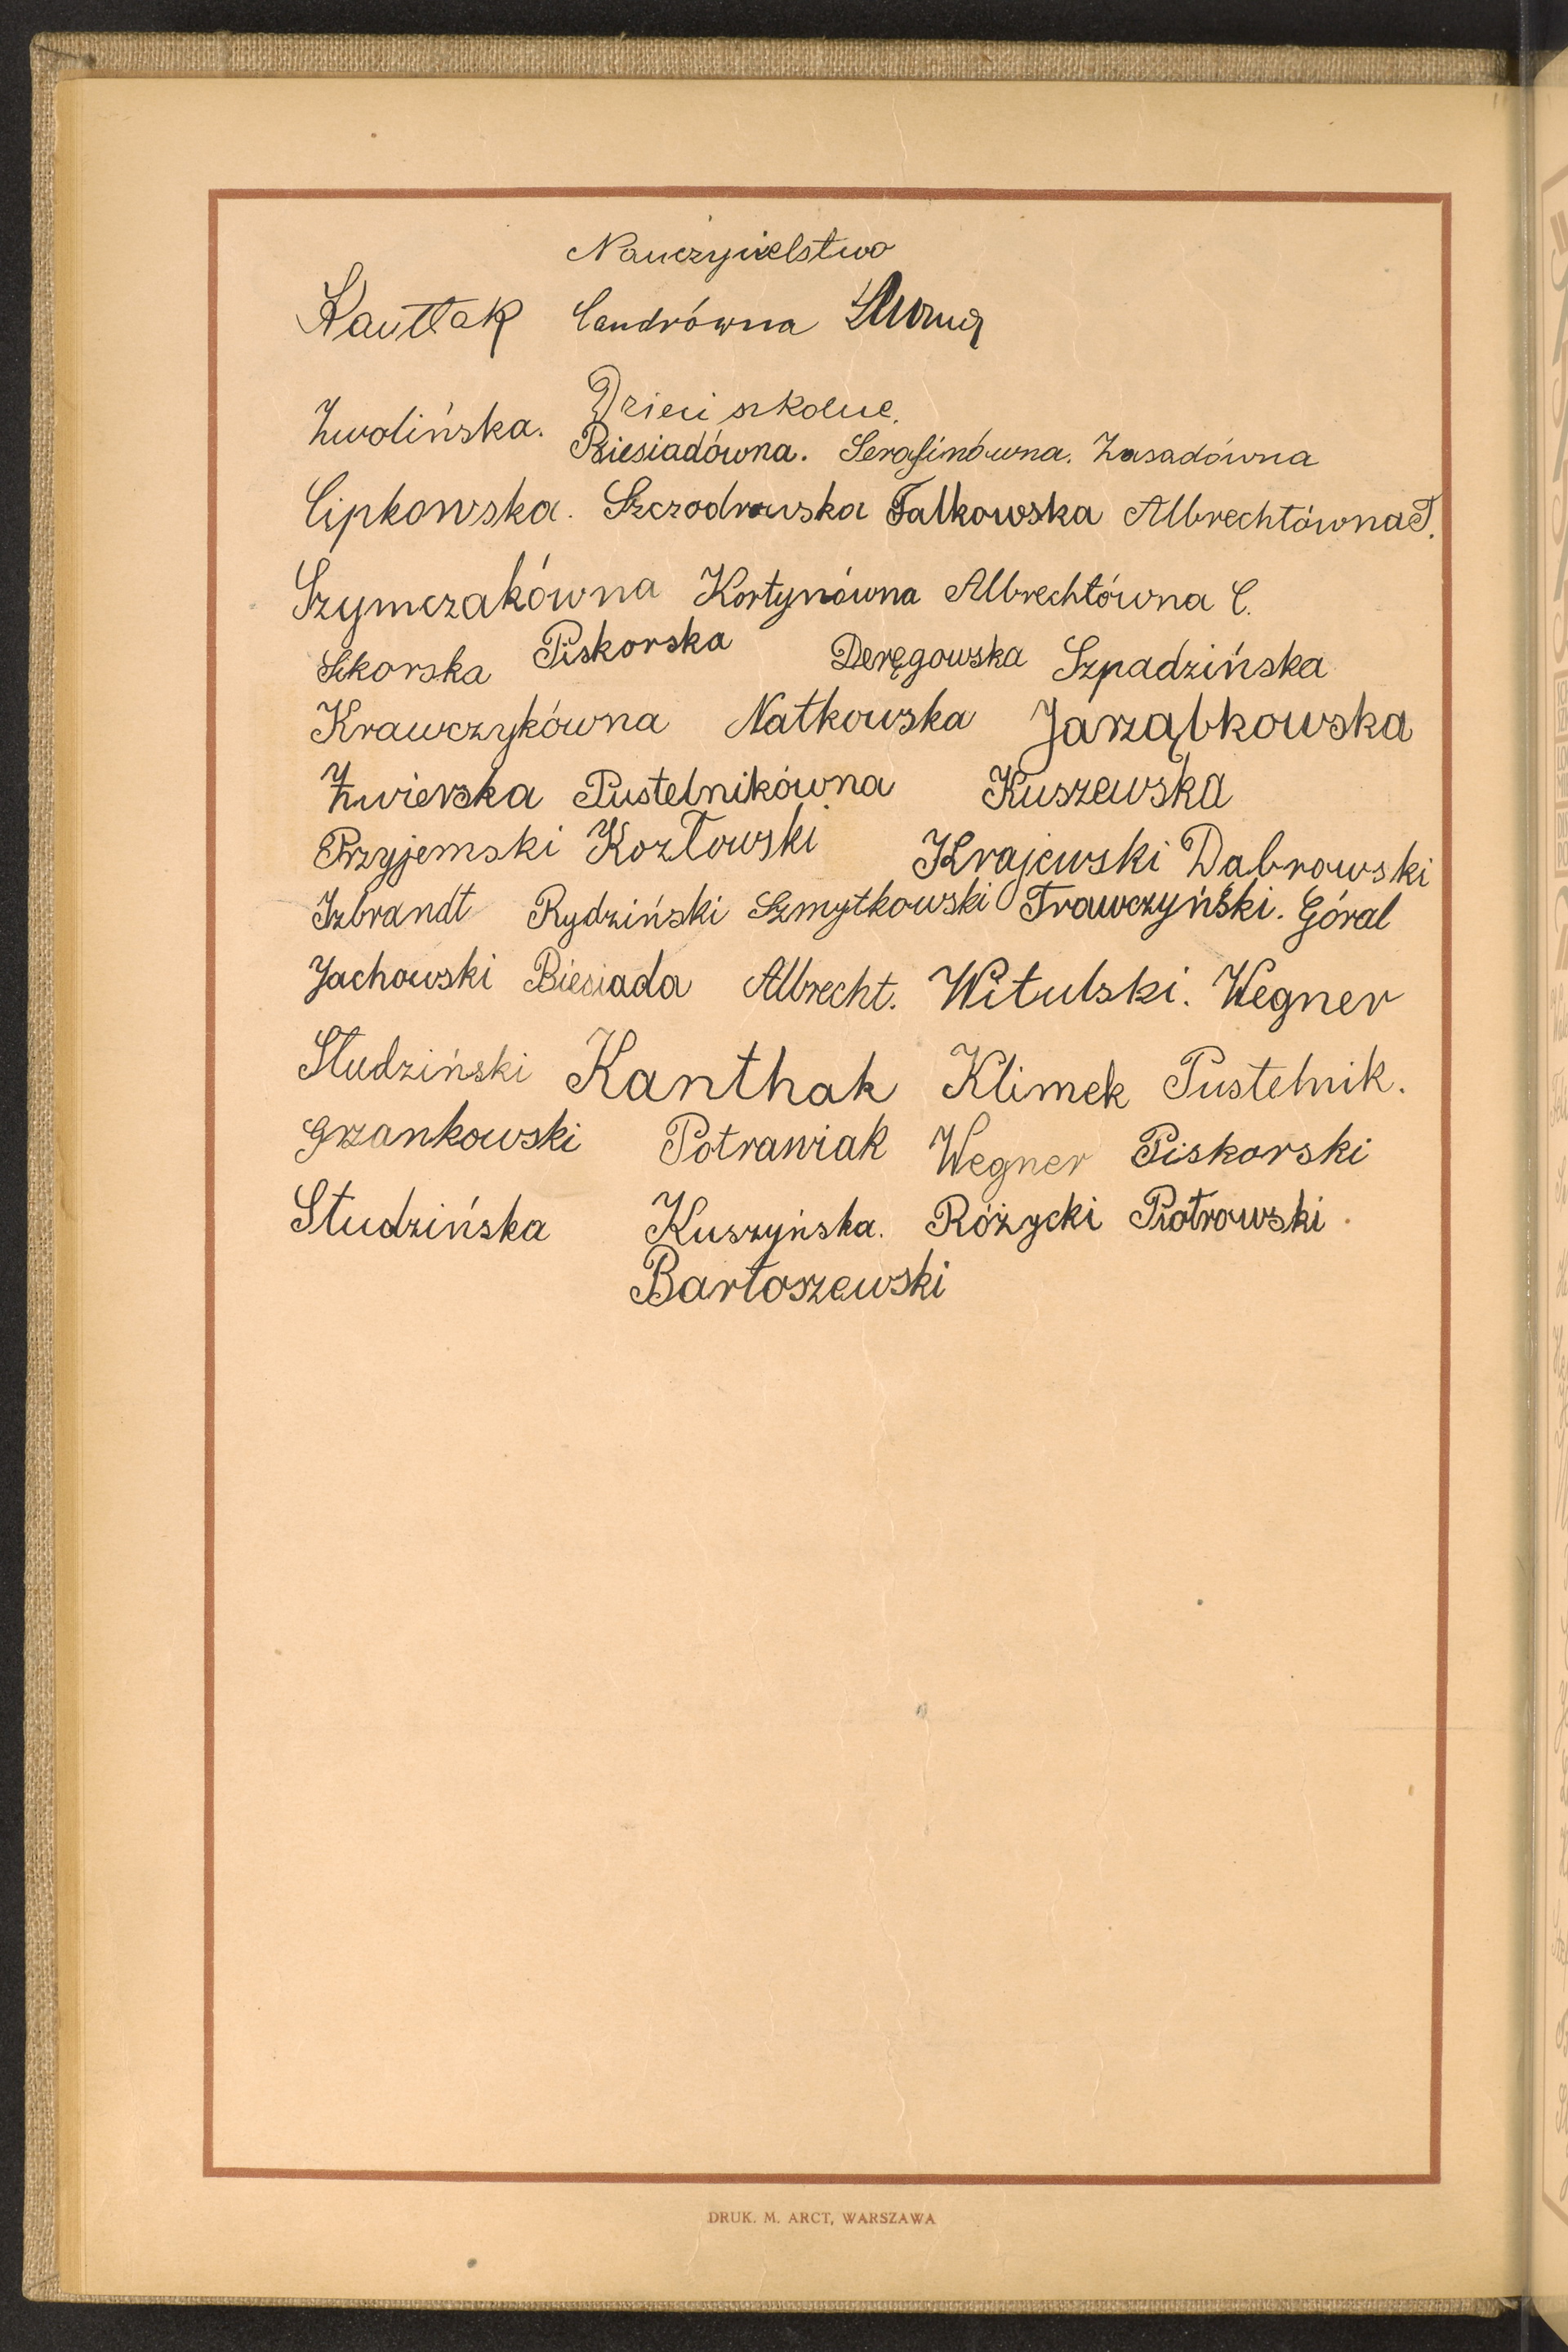 Nauczycielstwo
Kauttak Candrówna
Dzieci szkolne.
Zwolińska. Biesiadówna. Serafinówna. Zasadówna
Cipkowska. Szczodrowska Falkowska Albrechtówna T.
Szymczakówna Kortynówna Albrechtówna C.
Sikorska Piskorska Deręgowska Szpadzińska
Krawczykówna Natkowska Jarząbkowska
Żwierska Pustelnikówna Kuszewska
Przyjemski Kozłowski Krajewski Dabrowski
Izbrandt Rydziński Szmytkowski Trawczyński. Góral
Jachowski Biesiada Albrecht. Witulski. Wegner
Studziński Kanthak Klimek Pustelnik.
Grzankowski Potrawiak Wegner Piskorski
Studzińska Kuszyńska. Różycki Piotrowski.
Bartoszewski
DRUK. M. ARCT, WARSZAWA